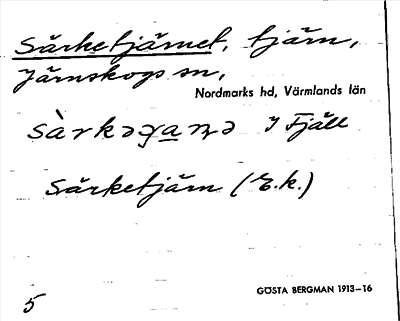 Särketjärnet, tjärn,
Järnskogs sn,
Nordmarks hd, Värmlands län
Fjäll
Särketjärn (E.k.)
GÖSTA BERGMAN 1913–16
5